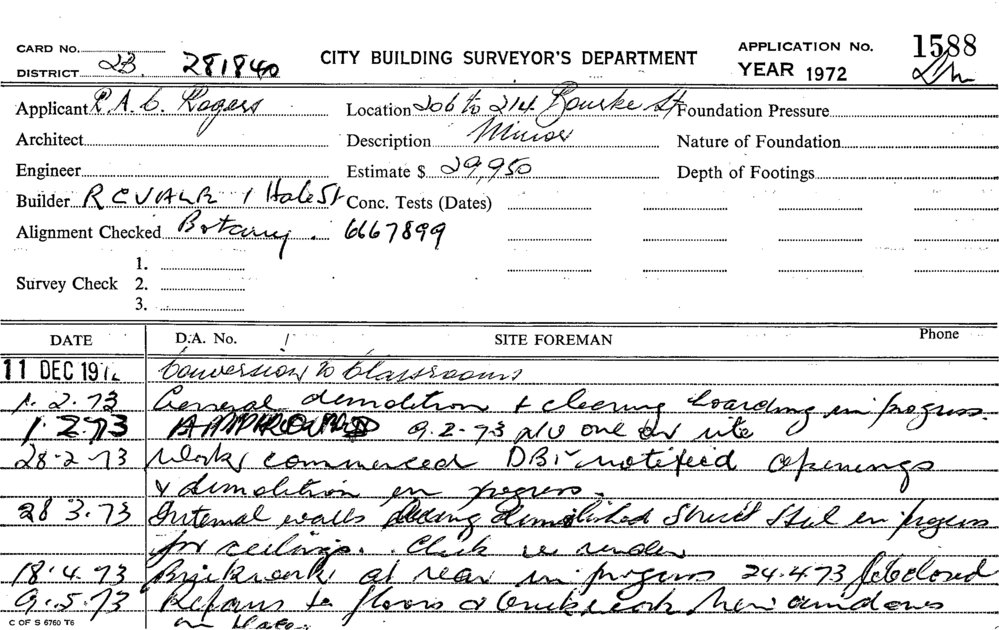 CARD No.
DISTRICT 2B. 281840
CITY BUILDING SURVEYOR'S DEPARTMENT
APPLICATION No. 1588
YEAR 1972
Applicant R.A.C. Rogers
Location 206 to 214 Bourke St
Foundation Pressure
Architect
Description Minor
Nature of Foundation
Engineer
Estimate $ 29,950
Depth of Footings
Builder REVALR 1 Hale St
Conc. Tests (Dates)
Alignment Checked Botany. 6667899
Survey Check
1.
2.
3.
DATE D.A. No. / SITE FOREMAN Phone
11 DEC 1972 Conversion to Classrooms
1.2.73 General demolition & clearing hoarding in progress.
1.2.73 APPROVED 9.2.73 one on site
28-2-73 Works commenced DBS notified openings
& demolition in progress.
28 3.73 Internal walls being demolished Struct Steel in progress
for ceilings. Check re render
18.4.73 Brickwork at rear in progress 24.4.73 Job closed
9.5.73 Repairs to floors & brickwork New windows
in place.
C OF S 6760 T6